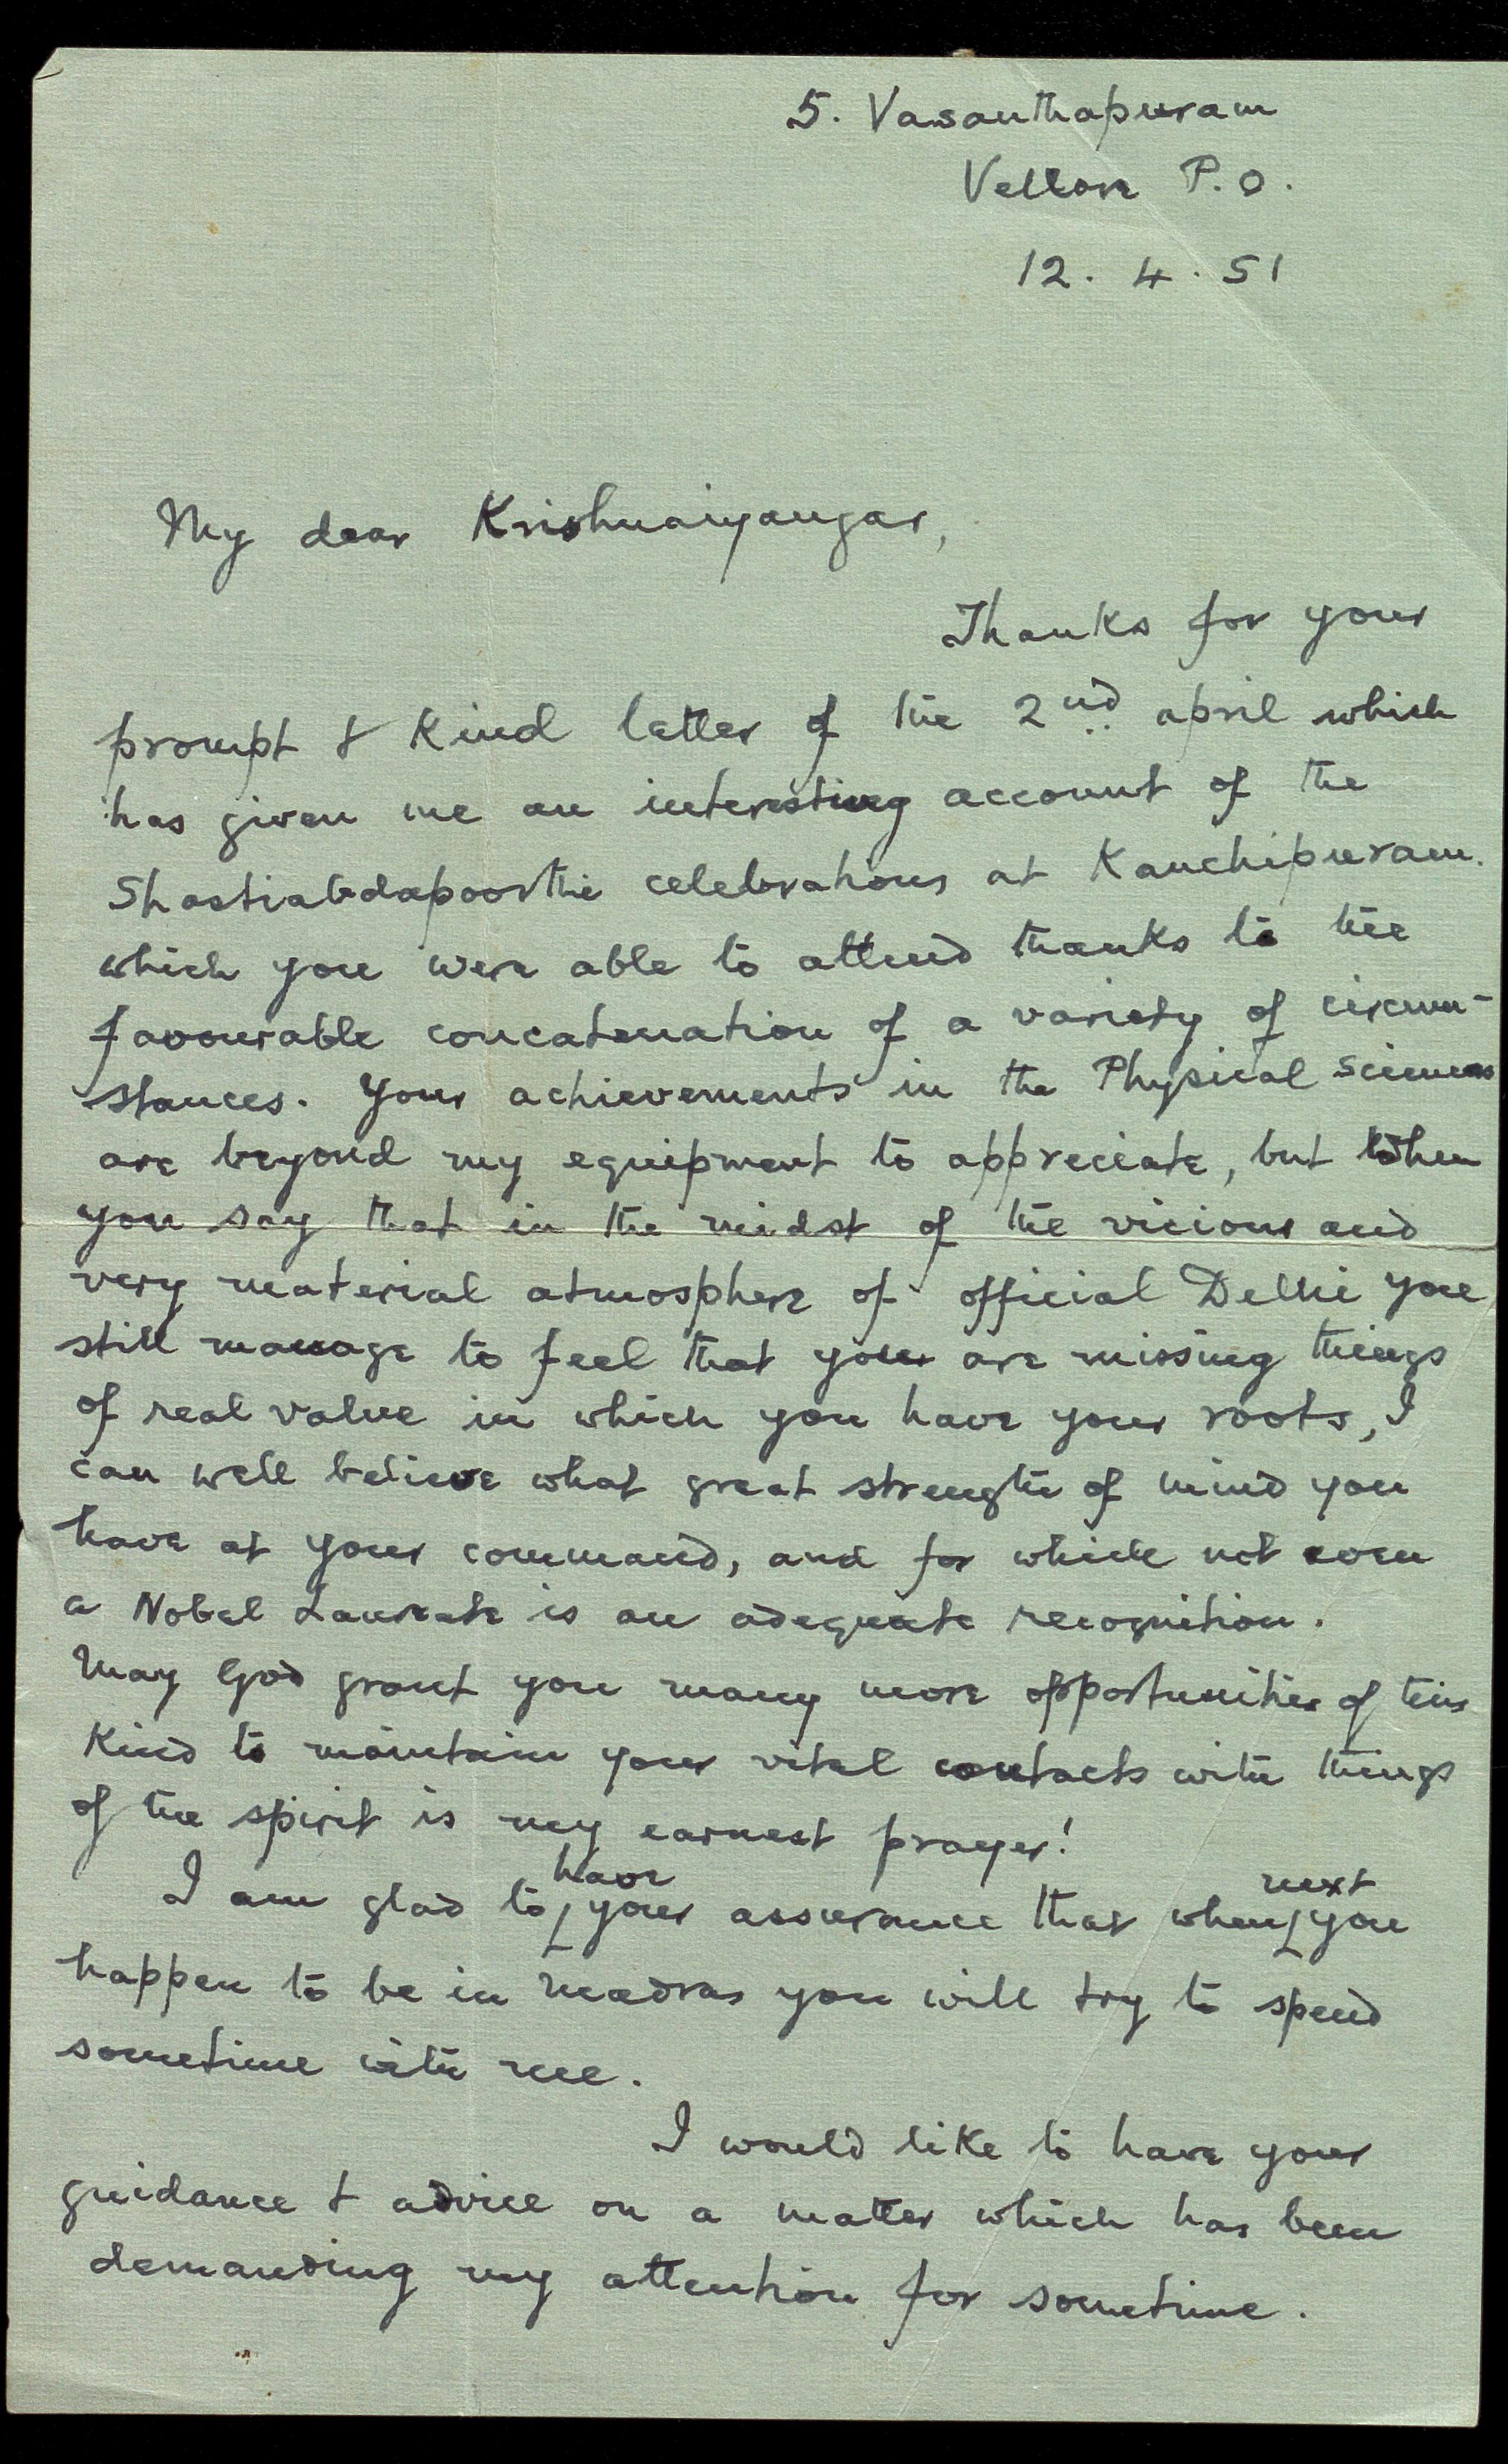 5. Vasanthapuram
Vellore P.O.
12. 4. 51
My dear Krishnaiyangar,
Thanks for your
prompt & kind letter of the 2nd april which
has given me an interesting account of the
Shastiabdapoorthi celebrations at Kanchipuram.
which you were able to attend thanks to the
favourable concatenation of a variety of circum-
stances. Your achievements in the Physical Sciences
are beyond my equipment to appreciate, but when
you say that in the midst of the vicious and
very material atmosphere of official Delhi you
still manage to feel that you are missing things
of real value in which you have your roots, I
can well believe what great strength of mind you
have at your command, and for which not even
a Nobel Laureate is an adequate recognition.
May God grant you many more opportunities of this
kind to maintain your vital contacts with things
of the spirit is my earnest prayer!
I am glad to have your assurance that when next you
happen to be in Madras you will try to spend
sometime with me.
I would like to have your
guidance & advice on a matter which has been
demanding my attention for sometime.